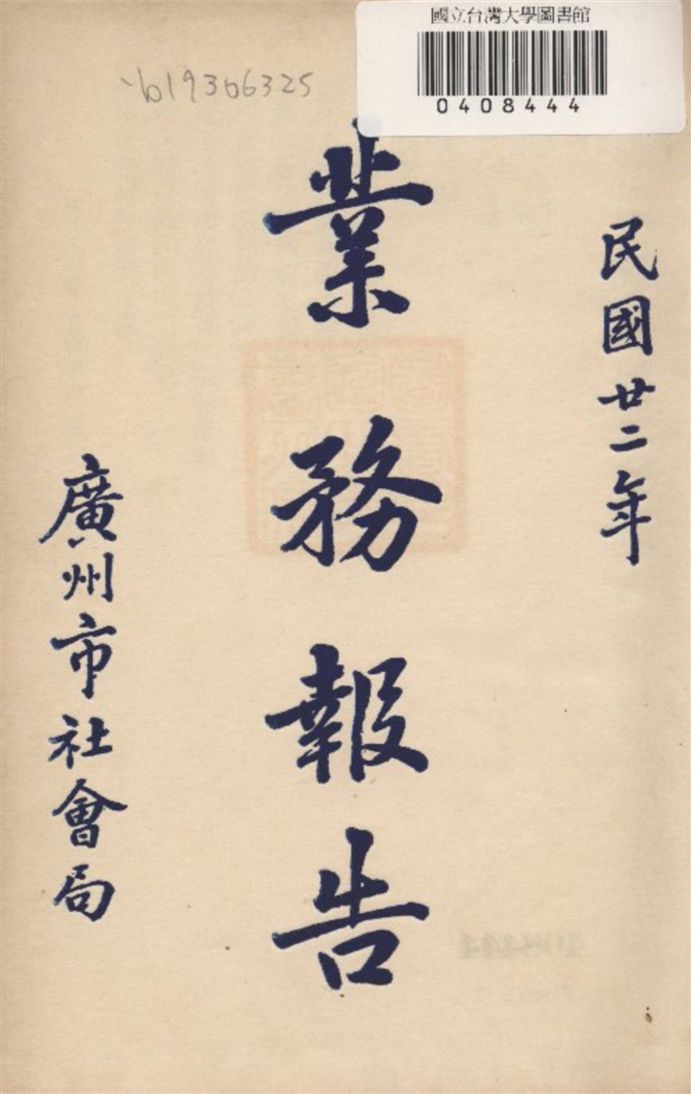 國立台灣大學圖書館
0408444
b19306325
民國廿二年
業務報告
廣州市社會局